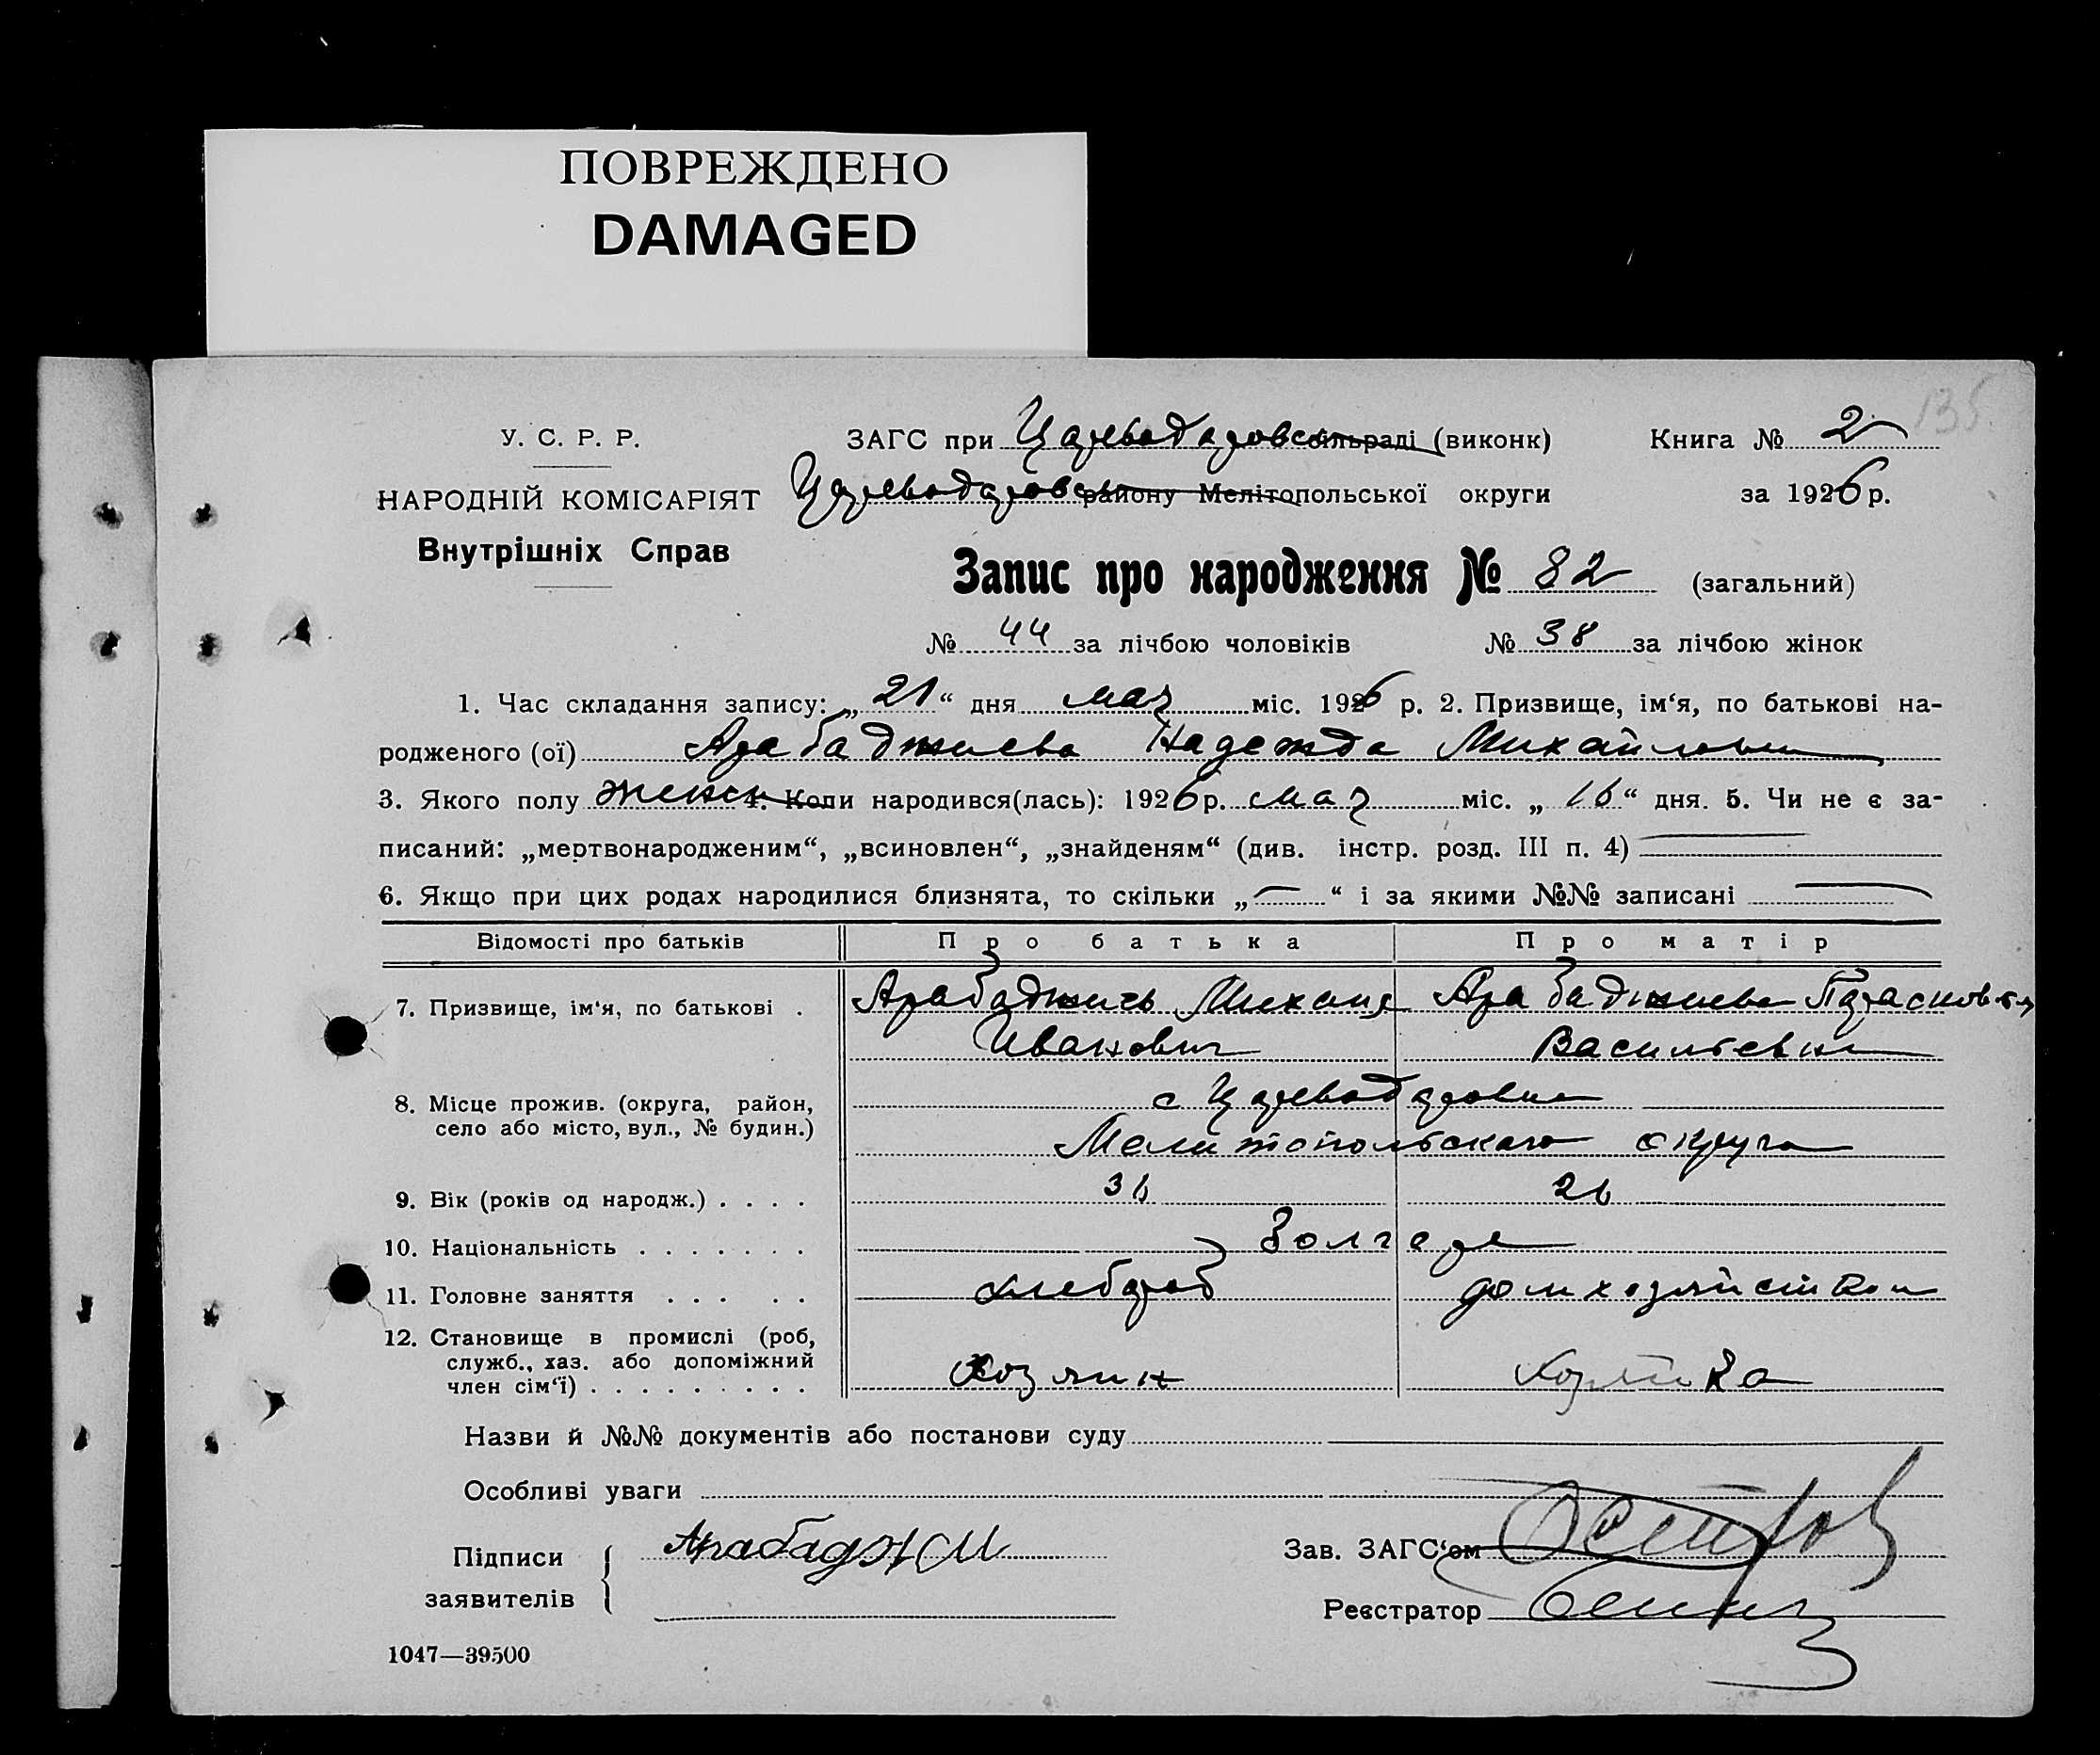 ПОВРЕЖДЕНО
DAMAGED
135
У. С. Р. Р.
НАРОДНІЙ КОМІСАРІЯТ
Внутрішніх Справ
ЗАГС при Цареводаровск сільраді (виконк)
Цареводаровск району Мелітопольської округи
Книга № 2
за 1926 р.
Запис про народження № 82 (загальний)
№ 44 за лічбою чоловіків № 38 за лічбою жінок
1. Час складання запису: „21“ дня мая міс. 1926 р. 2. Призвище, ім‘я, по батькові на-
родженого (ої) Арабаджиева Надежда Михайловна
3. Якого полу женск 4. Коли народився(лась): 1926 р. мая міс. „16“ дня. 5. Чи не є за-
писаний: „мертвонародженим“, „всиновлен“, „знайденям“ (див. інстр. розд. III п. 4)
6. Якщо при цих родах народилися близнята, то скільки „ “ і за якими №№ записані
Відомості про батьків Про батька Про матір
7. Призвище, ім‘я, по батькові . Арабаджиев Михаил Арабаджиева Парасковья
Иванович Васильевна
8. Місце прожив. (округа, район, село або місто, вул., № будин.) с Цареводаровка
Мелитопольского округа
9. Вік (років од народж.) . . . . 36 26
10. Національність . . . . . . . Болгаре
11. Головне заняття . . . . . хлебороб домхозяйством
12. Становище в промислі (роб,
служб., хаз. або допоміжний
член сім‘ї) . . . . . . . . . Хозяин Хозяйка
Назви й №№ документів або постанови суду
Особливі уваги
Підписи
заявителів
Арабаджи
Зав. ЗАГС‘ом
Реєстратор
1047—39500